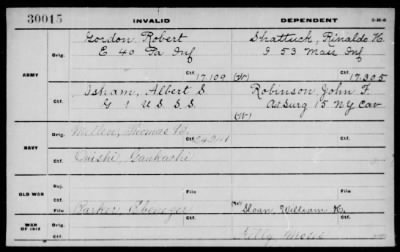 30015 INVALID DEPENDENT
Gordon Robert
E 40 Pa Inf
Shattuck, Rinaldo H.
I 53 Mass Inf
ARMY
Orig.
Ctf. 17.109 (W) Ctf. 17.305
Isham, Albert S
G 1 U.S.S.S.
Robinson, John F.
Ass Surg 15 N.Y. Cav
Ctf. (W) Ctf.
NAVY
Orig.
Thomas
Ctf.
Ctf.
OLD WAR
Orig.
Ctf. File Ctf. File
WAR OF 1812
Orig. Parker, Ebenezer
Sloan, William H.
Ctf.
Kelly